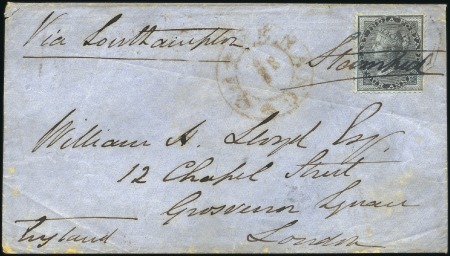 Via Southampton
Stamped
William H. Lloyd Esq.
12 Chapel Street
Grosvenor Square
London
England